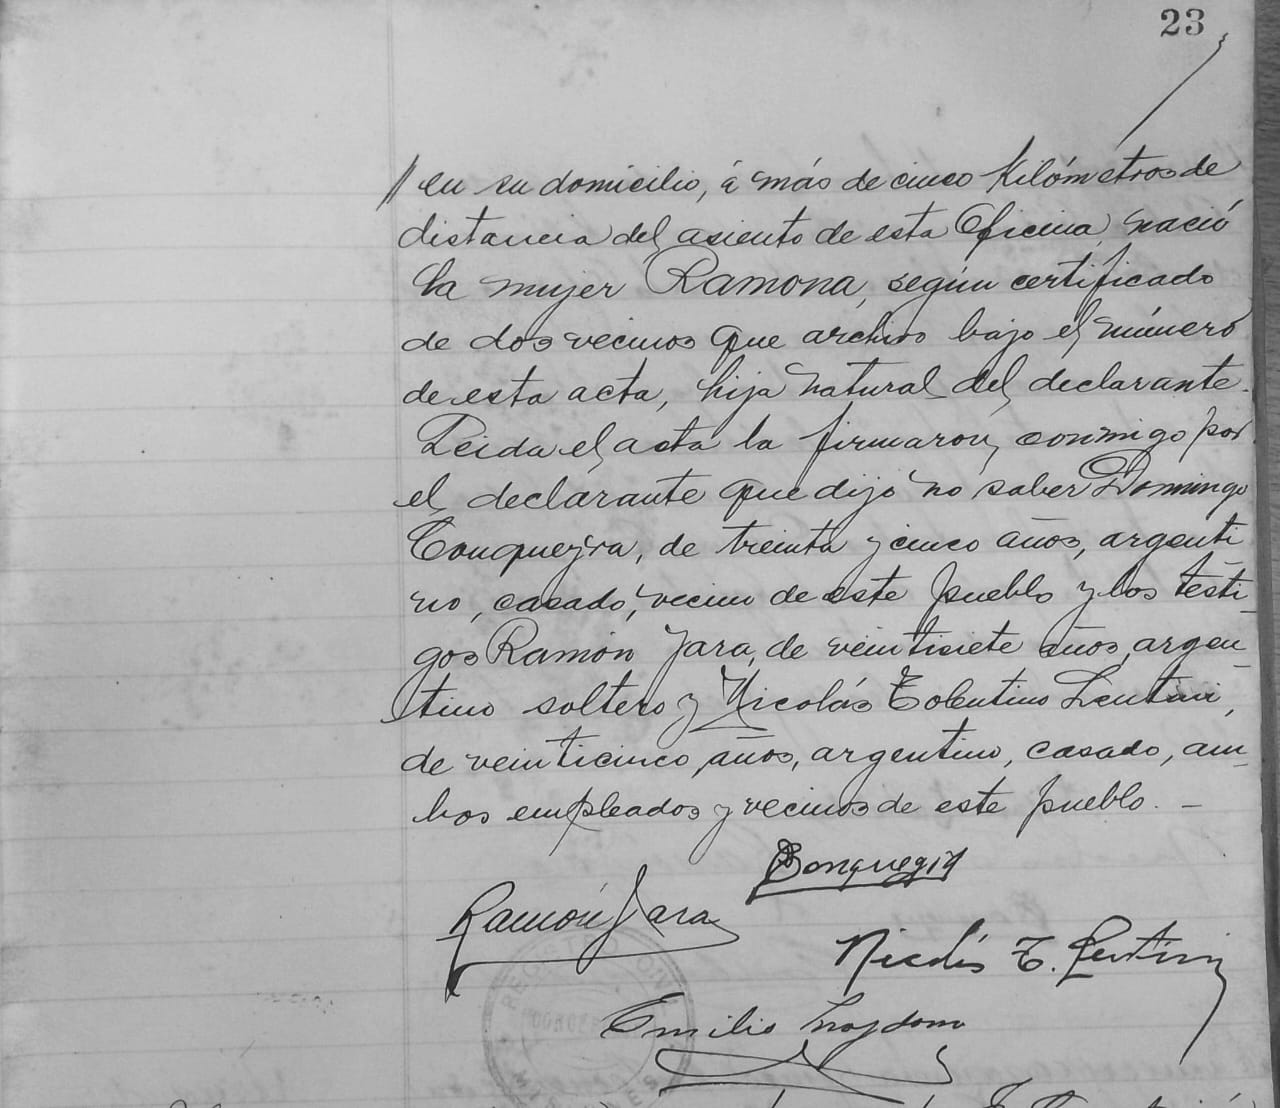 23
// en su domicilio, á más de cinco Kilómetros de
distancia del asiento de esta Oficina, nació
la mujer Ramona, según certificado
de dos vecinos que archivo bajo el número
de esta acta, hija natural del declarante.
Leida el acta la firmaron, conmigo por
el declarante que dijo no saber Domingo
Conqueyra, de treinta y cinco años, argenti
no, casado, vecino de este pueblo y los testi_
gos Ramón Jara, de veintisiete años, argen_
tino soltero y Nicolás Tolentino Lentini,
de veinticinco años, argentino, casado, am_
bos empleados y vecinos de este pueblo. _
Ramón Jara
Nicolás T. Lentini
Emilio
REGISTRO CIVIL